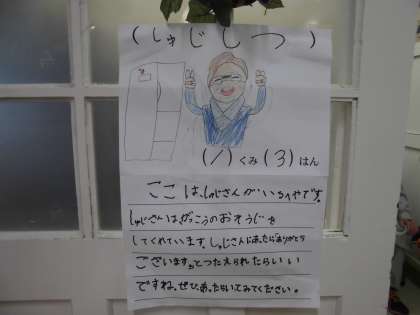 (しゅじしつ)
(1)くみ(3)はん
ここは、しゅじさんがいるへやです。
しゅじさんは、がっこうのおそうじを
してくれています。しゅじさんにあったら「ありがとう
ございます。」とつたえられたらいい
ですね。ぜひ、あったらいってみてください。